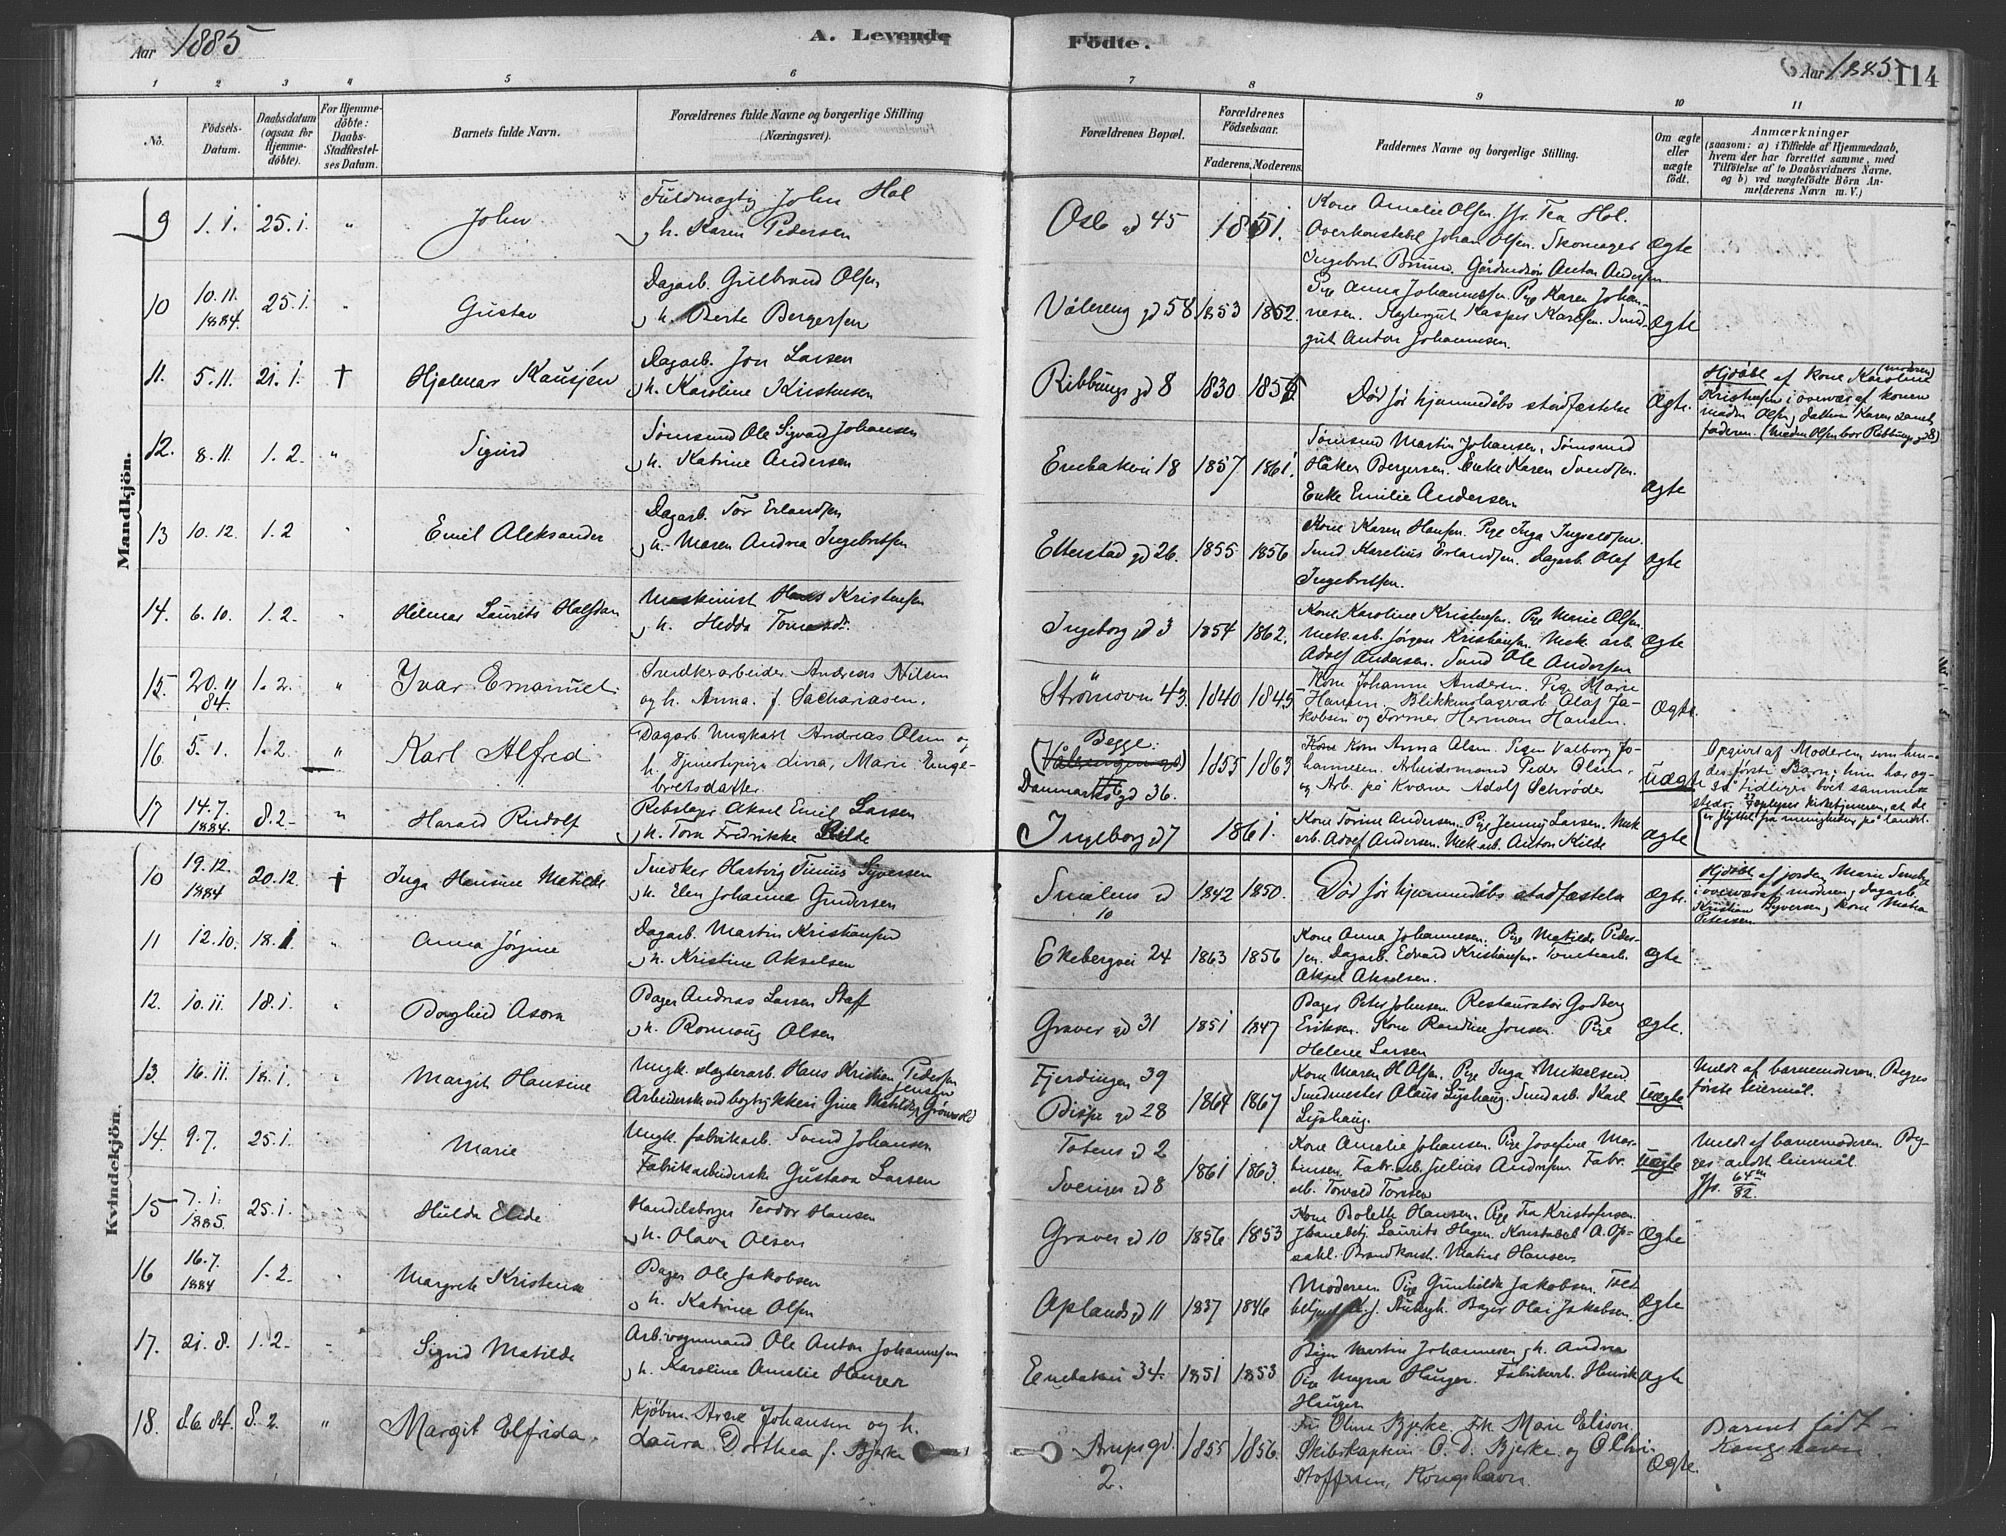 Aar 1885
A. Levende
Födte.
Aar 1885
114
1 2 3 4 5 6 7 8 9 10 11
No.
Födsels-
Datum.
Daabsdatum
(ogsaa for
Hjemme-
döbte).
For Hjemme-
döbte:
Daabs-
Stadfæstel-
ses Datum.
Barnets fulde Navn.
Forældrenes fulde Navne og borgerlige Stilling
(Næringsvei).
Forældrenes Bopæl.
Forældrenes
Födselsaar.
Faderens. Moderens.
Faddernes Navne og borgerlige Stilling.
Om ægte
eller
uægte
födt.
Anmærkninger
(saasom: a) i Tilfælde af Hjemmedaab,
hvem der har forrettet samme, med
Tilföielse af to Daabsvidners Navne,
og b) ved uægtefödte Börn An-
melderens Navn m. V.)
Mandkjön.
9 1.1. 25.1. " John
Fuldmægtig John Hol
h. Karen Pedersen
Oslo gd 45 1851.
Kone Amalie Olsen. Jfr. Tea Hol.
Overkonstabel Johan Olsen. Skomager
Ægte
10 10.11. 1884. 25.1. " Gustav
Dagarb. Gulbrand Olsen
h. Berte Bergersen
Vålereng gd 58 1853 1852.
Pige Anna Johannessen. Pige Karen Johan-
nesen. Kasper Karlsen. Smed-
gut Anton Johannesen.
Ægte
11. 5.11. 21.1. † Hjalmar
Dagarb. Jon Larsen
h. Karoline Kristensen
Ribbungs gd 8 1830
Död för hjemmedåbs stadfæstelse
Ægte.
Hjdöbt af kone Karoline (moderen)
Kristensen i overvær af konen
faderen.
12. 8.11. 1.2. " Sigurd
Tömmermand Ole Sigvard Johansen
h. Katrine Andersen
Enebakvei 18 1857 1861.
Martin Johansen.
Håken Bergersen. Enke Karen Svendsen.
Enke Emilie Andersen.
Ægte
13 10.12. 1.2 " Emil Aleksander
Dagarb. Tor Erlandsen
h. Maren Andrea Ingebretsen
Etterstad gd 26. 1855 1856
Kone Karen Hansen. Pige Inga
Smed. Karelius Erlandsen. Dagarb. Olaf
Ingebretsen.
Ægte
14. 6.10. 1.2. " Helmar Laurits Halfdan
Maskinist Hans Kristensen
h. Hedda
Ingeborg gd 3 1854 1862.
Kone Karoline Kristensen. Pige Marie Olsen.
Mek. arb. Jörgen Kristiansen. Mek. arb.
Adolf Andersen. Smed Ole Andersen
Ægte
15. 20.11 84. 1.2. " Yvar Emanuel.
Snedkerarbeider Andreas Nilsen
og h. Anna. f. Sachariasen.
Strömsvei 43. 1840 1845
Kone Johanne Andersen. Pige Marie
Hansen. Blikkenslagerarb. Olaf Ja-
kobsen og Former Herman Hansen.
Ægte.
16. 5.1. 1.2. " Karl Alfred
Dagarb. Ungkarl Andreas Olsen og
h. Tjenestepige Lina, Marie Enge-
bretsdatter
Begge:
(Vålerengen gd)
Danmarks gd 36. 1855 1863
Kone Kone Anna Olsen. Pigen Valborg Jo-
hannesen. Arbeidsmand Peder Olsen.
og Arb. på Kværner Adolf Schröder
Uægte
Opgivet af Moderen som hen-
des förste Barn; hun har og-
så tidligere boet sammes
steds.
17 14.7. 1884. 8.2. " Harald Rudolf
Rebslager Aksel Emil Larsen
h. Tora Fredrikke Kilde
Ingeborg gd 7 1861.
Kone Torine Andersen. Pige Jenny Larsen. Mek
arb. Adolf Andersen. Mek arb. Anton Kilde
Ægte
Kvindekjön.
10 19.12. 1884 20.12. † Inga Hansine Matilde
Snedker Hartvig Tinius Syversen
h. Elen Johanne Gundersen
Smålens gd
10
1842 1850.
Död för hjemmedåbs stadfæstelse
Ægte.
Kristian Syversen, kone
Petersen
11 12.10. 18.1 " Anna Jörgine
Dagarb. Martin Kristiansen
h. Kristine Akselsen
Ekebergvei 24 1863 1856
Kone Anna Johannesen. Pige Matilde Peder-
sen. Dagarb. Edvard Kristiansen. Tomtearb.
Aksel Akselsen.
Ægte
12. 10.11. 18.1. " Daglind Asora
Bager Andreas Larsen Staff
h. Rønnaug Olsen
Graver gd 31 1851 1847
Bager Peter Johnsen. Restauratör Godberg
Eriksen. Kone Randine Jonsen. Pige
Helene Larsen
Ægte.
13. 16.11. 18.1. " Margit Hansine
Ungk. slagterarb. Hans Kristian Pedersen
Jensen
Arbeiderske ved bogtrykkeri Gina Matilde Grönvold
Fjerdingen 39
Bispe gd 28
1864 1867
Kone Maren H. Olsen. Pige Inga Mikelsen.
Smedmester Olaus Lyshaug. Smedarb. Karl
Lyshaug.
Uægte
Meldt af barnemoderen. Begges
förste leiermål.
14. 9.7. 25.1. " Marie
Ungk. fabrikarb. Svend Johansen
Fabrikarbeiderske Gustava Larsen
Totens gd 2
Sveriges gd 8
1861 1863.
Kone Amalie Johansen. Pige Josefine Mar-
tinsen. Fabr. arb. Julius Andersen. Fabr.
arb. Torvald Torsen
Uægte
Meldt af barnemoderen. Beg-
ges andet leiermål.
15 7.1. 1885. 25.1. Hulda Elide
Handelsborger Teodor Hansen
h. Olava Olsen
Graver gd 10 1856. 1853
Kone Bolette Hansen. Pige Tea Kristofersen.
Jbanebetj. Laurits Hagen. Konstabel A. Op-
sahl. Brandkonst. Hansen.
Ægte
16 16.7. 1884 1.2. " Margrete Kristense
Bager Ole Jakobsen
h. Katrine Olsen
Oplands gd 11 1837 1846
Moderen. Pige Gunhilda Jakobsen. Told-
Bager Olai Jakobsen.
Ægte
17. 21.8. 1.2. " Sigrid Matilde
Arb. vognmand Ole Anton Johannesen
h. Karoline Amalie Hauger
Enebakvei 34. 1851 1853
Bager Martin Johannesen h. Andrea
Pige Magna Hauger. Fabrikarb. Henrik
Hauger
Ægte
18. 8.6 84. 8.2. " Margit Elfrida.
Kjöbm. Arne Johansen og h.
Laura Dorthea f. Bjerke
Arups gd.
2.
1855 1856.
Fru Oline Bjerke. Frk. Marie Elison.
Skibskaptein O. D. Bjerke og O Chri-
stoffersen, Kongshavn.
Ægte.
Barnet födt
Kongshavn.